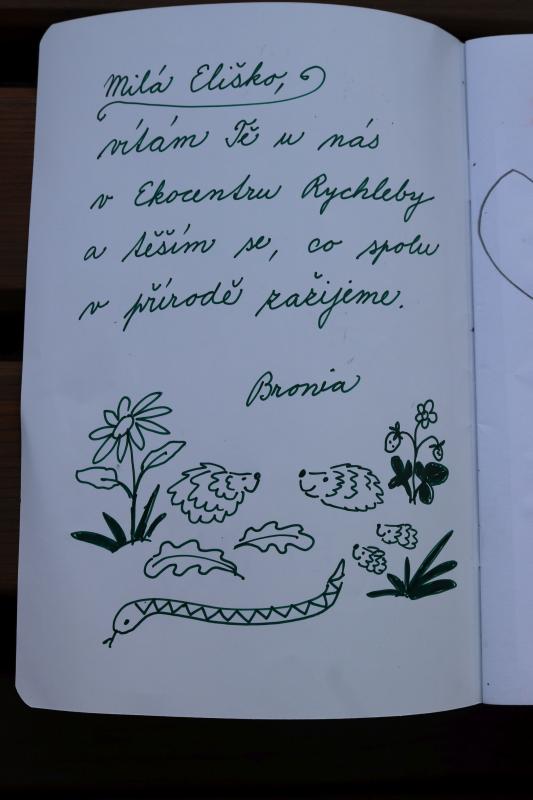 Milá Eliško,
vítám Tě u nás
v Ekocentru Rychleby
a těším se, co spolu
v přírodě zažijeme.
Bronia